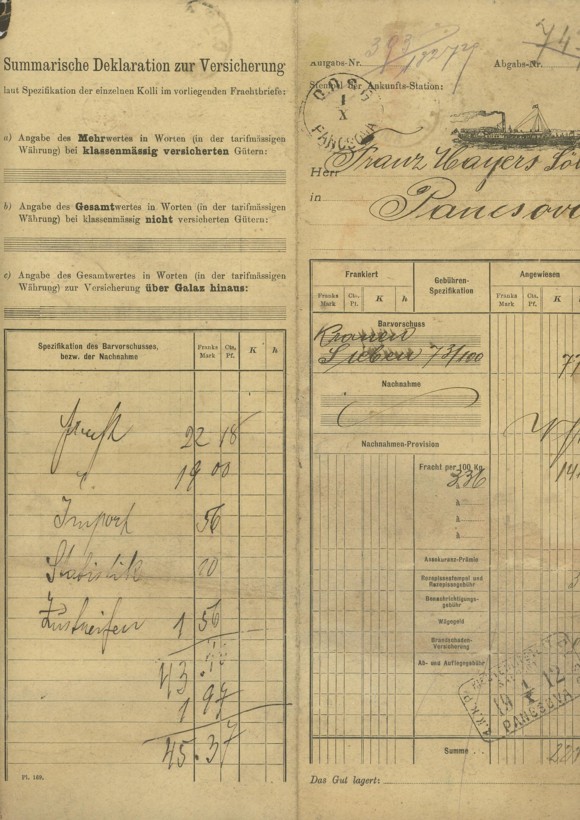 Summarische Deklaration zur Versicherung
laut Spezifikation der einzelnen Kolli im vorliegenden Frachtbriefe:
a) Angabe des Mehrwertes in Worten (in der tarifmässigen
Währung) bei klassenmässig versicherten Gütern:
b) Angabe des Gesamtwertes in Worten (in der tarifmässigen
Währung) bei klassenmässig nicht versicherten Gütern:
c) Angabe des Gesamtwertes in Worten (in der tarifmässigen
Währung) zur Versicherung über Galaz hinaus:
Spezifikation des Barvorschusses,
bezw. der Nachnahme
Franks
Mark
Cts.
Pf.
K
h
22 18
19 00
Import 56
Statistik 10
1 56
43
1 97
45.37
Pl. 169.
Aufgabs-Nr.
Abgabs-Nr.
Stempel der Ankunfts-Station:
PANCSOVA
Herr Franz Mayers
in Pancsova
Frankiert
Gebühren-
Spezifikation
Angewiesen
Franks
Mark
Cts.
Pf.
K
h
Franks
Mark
Cts.
Pf.
K
Barvorschuss
Kronen
Sieben 73/100
Nachnahme
Nachnahmen-Provision
Fracht per 100 Kg.
336
à
à
à
Assekuranz-Prämie
Rezepissestempel und
Rezepissegebühr
Benachrichtigungs-
gebühr
Wägegeld
Brandschaden-
Versicherung
Ab- und Auflegegebühr
19 1 X 12
PANCSOVA
Summe
Das Gut lagert: